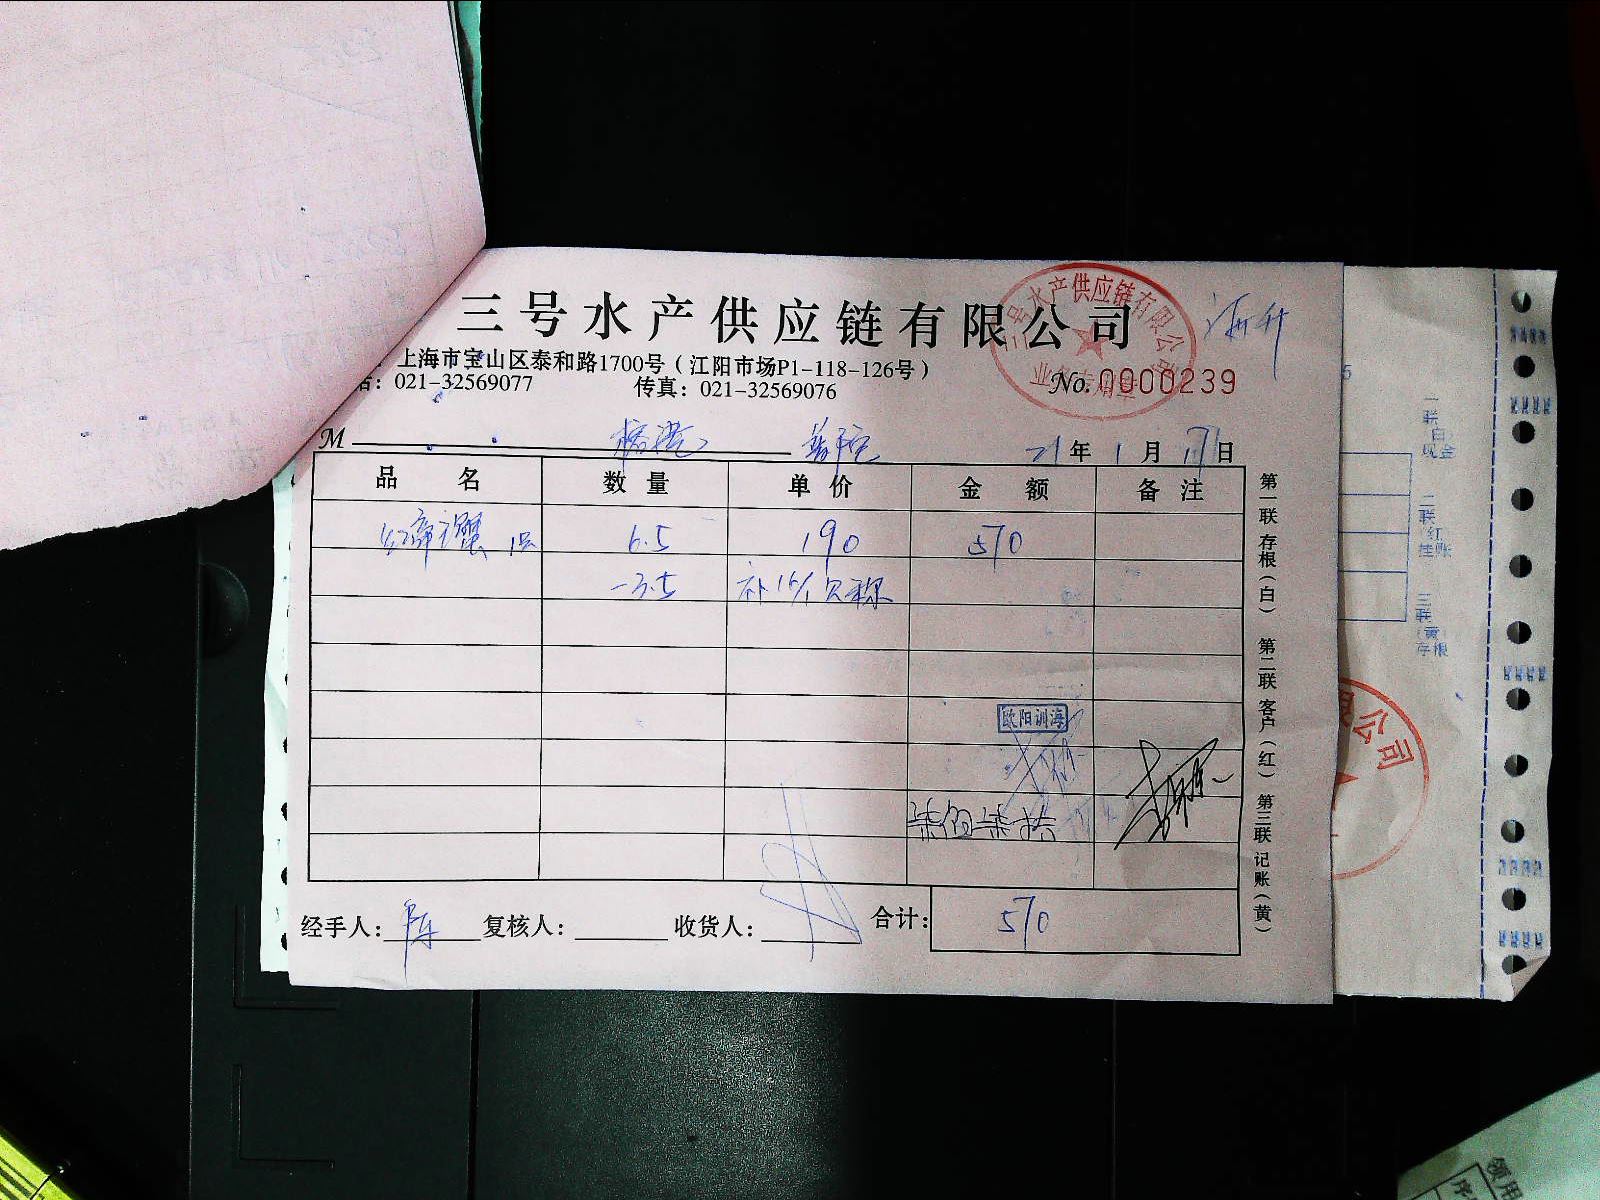 三号水产供应链有限公司
上海市宝山区泰和路1700号（江阳市场P1-118-126号）
021-32569077 传真：021-32569076
三号水产供应链有限公司
No.0000239
M 21年1月17日
品名 数量 单价 金额 备注
帝王蟹 1只 6.5 190 570
-3.5 补16/1欠票
欧阳训海
经手人：陈 复核人： 收货人： 合计：570
第一联 存根（白） 第二联 客户（红） 第三联 记账（黄）
一联 白 现金
二联 红 挂账
三联 （黄） 存根
限公司
5
领用
序